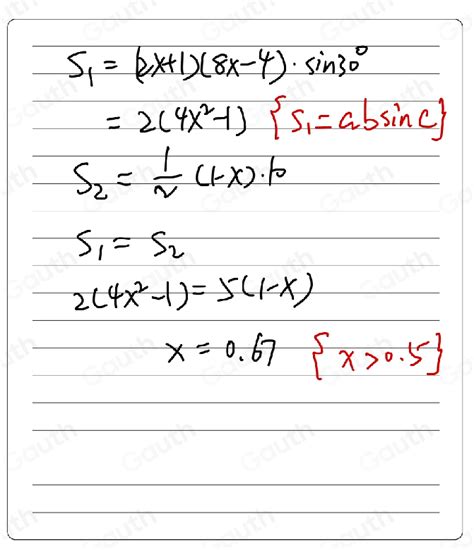 S₁ = (2x+1)(8x-4)·sin30°
= 2(4x²-1) {S₁=absinC}
S₂ = 1/2 (1-x)·10
S₁ = S₂
2(4x²-1) = 5(1-x)
x = 0.67 {x>0.5}